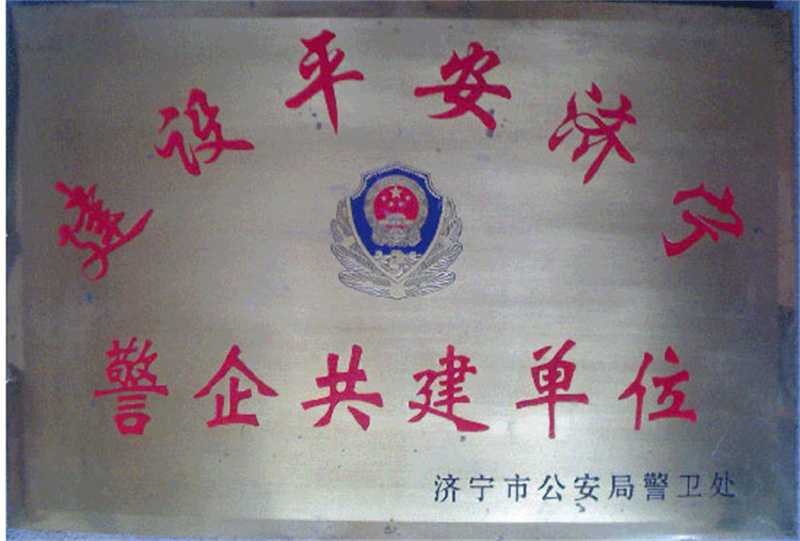 建设平安济宁
警企共建单位
济宁市公安局警卫处